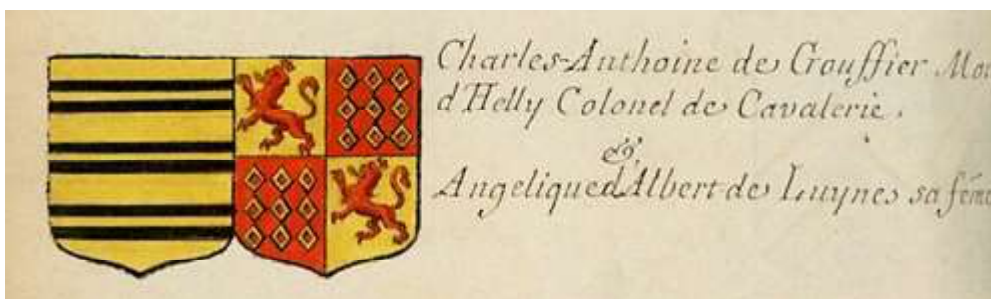 Charles-Anthoine de Gouffier
d'Helly Colonel de Cavalerie.
&
Angelique d'Albert de Luynes sa